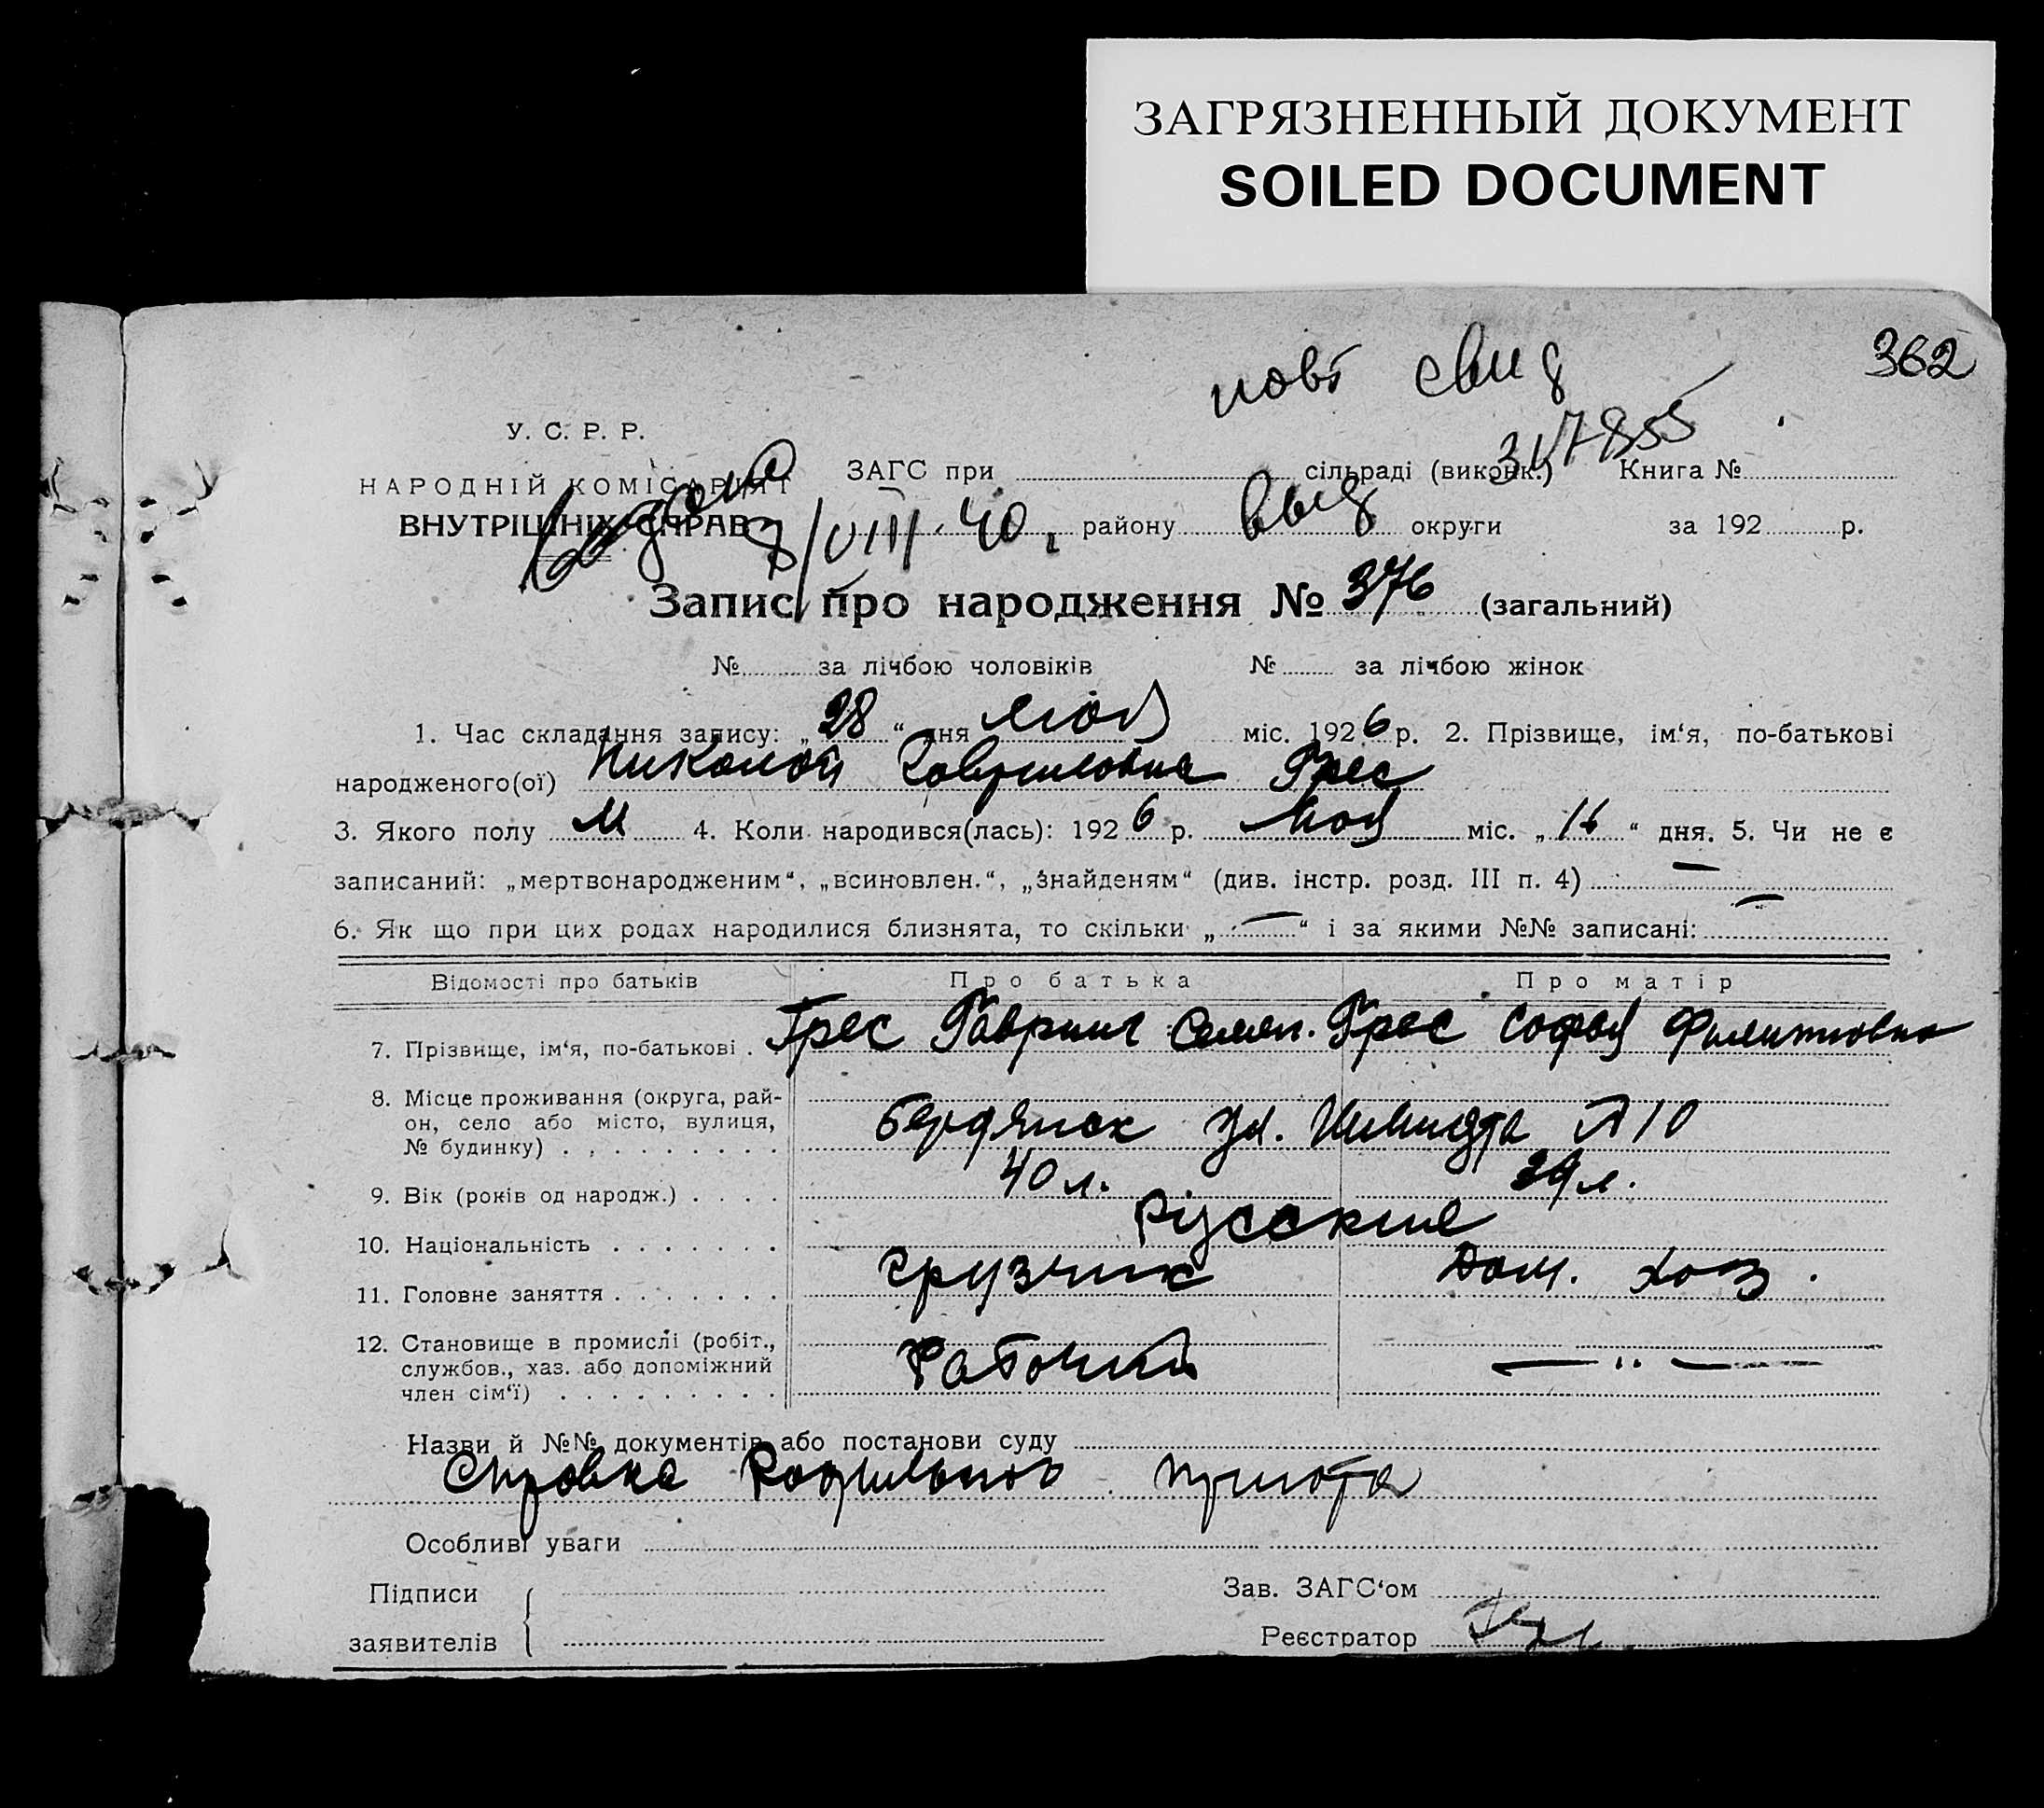 ЗАГРЯЗНЕННЫЙ ДОКУМЕНТ
SOILED DOCUMENT
362
повт свид
317855
У. С. Р. Р.
НАРОДНІЙ КОМІСАРІЯТ
ВНУТРІШНІХ СПРАВ
ЗАГС при сільраді (виконк.) Книга №
/VIII 40 г району выд округи за 192 р.
Запис про народження № 376 (загальний)
№ за лічбою чоловіків № за лічбою жінок
1. Час складання запису: „28“ дня мая міс. 1926 р. 2. Прізвище, ім‘я, по-батькові
народженого(ої) Николай Гавриловна Грес
3. Якого полу М 4. Коли народився(лась): 1926 р. Мая міс. „16“ дня. 5. Чи не є
записаний: „мертвонародженим“, „всиновлен.“, „знайденям“ (див. інстр. розд. III п. 4) —
6. Як що при цих родах народилися близнята, то скільки „—“ і за якими №№ записані: —
Відомості про батьків Про батька Про матір
7. Прізвище, ім‘я, по-батькові . Грес Гавриил Семен. Грес Софья Филипповна
8. Місце проживання (округа, рай-
он, село або місто, вулиця,
№ будинку) . . . . . . . . . Бердянск ул. Шмидта №10
9. Вік (років од народж.) . . . . 40 л. 39 л.
10. Національність . . . . . . . Русские
11. Головне заняття . . . . . . . Грузчик Дом. хоз.
12. Становище в промислі (робіт.,
службов., хаз. або допоміжний
член сім‘ї) . . . . . . . . . Рабочий — ,, —
Назви й №№ документів або постанови суду
Справка Родильного приюта
Особливі уваги
Підписи
заявителів
Зав. ЗАГС‘ом
Реєстратор